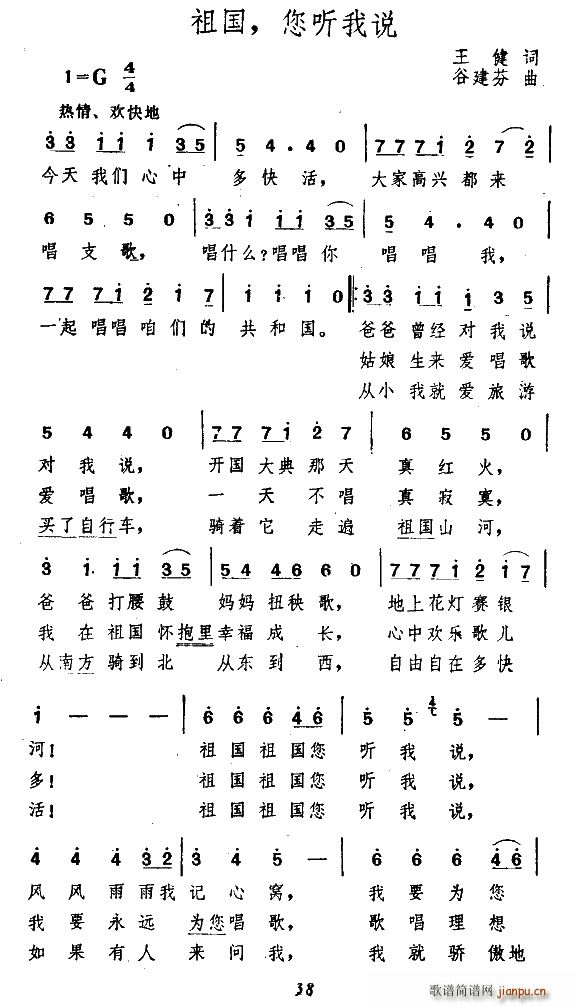 祖国，您听我说
王健 词
1=G 4/4
谷建芬 曲
热情、欢快地
3 3 1 1 1 3 5 | 5 4 . 4 0 | 7 7 7 1 2 7 2 |
今天我们心中 多快活， 大家高兴都来
6 5 5 0 | 3 3 1 1 1 3 5 | 5 4 . 4 0 |
唱支歌， 唱什么?唱唱你 唱唱我，
7 7 7 1 2 1 7 | 1 1 1 0 |: 3 3 1 1 1 3 5 |
一起唱唱咱们的 共和国。 爸爸曾经对我说
姑娘生来爱唱歌
从小我就爱旅游
5 4 4 0 | 7 7 7 1 2 7 | 6 5 5 0 |
对我说， 开国大典那天 真红火，
爱唱歌， 一天不唱 真寂寞，
买了自行车， 骑着它走追 祖国山河，
3 1 . 1 1 3 5 | 5 4 4 6 6 0 | 7 7 7 1 2 1 7 |
爸爸打腰鼓 妈妈扭秧歌， 地上花灯赛银
我在祖国怀抱里幸福成长， 心中欢乐歌儿
从南方骑到北 从东到西， 自由自在多快
1 — — — | 6 6 6 4 6 | 5 5 5 — |
河! 祖国祖国您 听我说，
多! 祖国祖国您 听我说，
活! 祖国祖国您 听我说，
4 4 4 3 2 | 3 4 5 — | 6 6 6 4 6 |
风风雨雨我 记心窝， 我要为您
我要永远 为您唱歌， 歌唱理想
如果有人 来问我， 我就骄傲地
38
歌谱简谱网
jianpu.cn